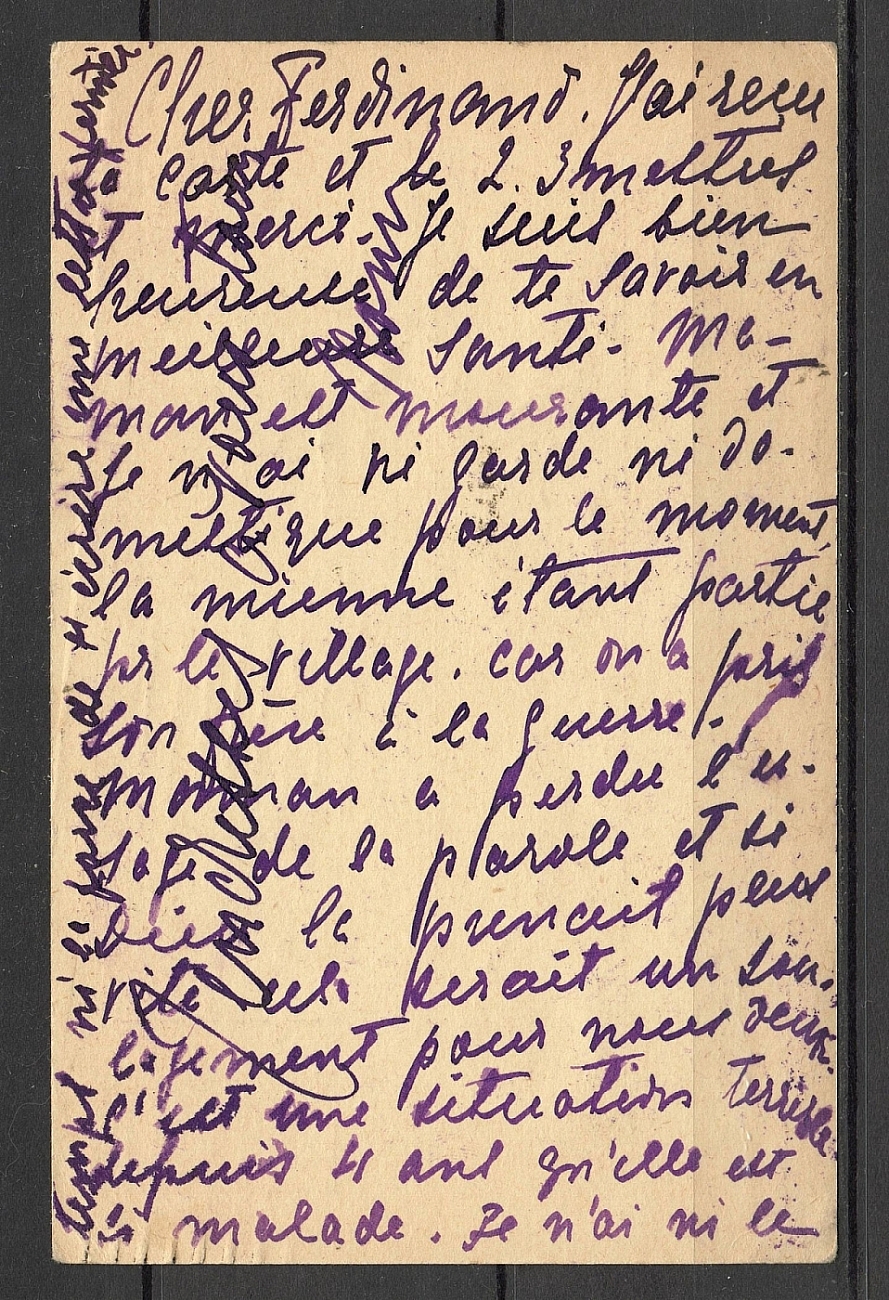 Cher Ferdinand. J'ai reçu
ta carte et le 2. 3 mettres
et merci. Je suis bien
heureuse de te savoir en
meilleure santé. Ma-
man est mourante et
Je n'ai ni garde ni do-
mestique pour le moment,
la mienne étant partie
pr le village. car on a pris
son père à la guerre.
Maman a perdu l'u-
sage de la parole et si
Dieu la prenait plus
vite cela serait un sou-
lagement pour nous deux.
C'est une situation terrible
depuis 4 ans qu'elle est
si malade. Je n'ai ni le
temps ni la force de t'écrire une lettre fermée.